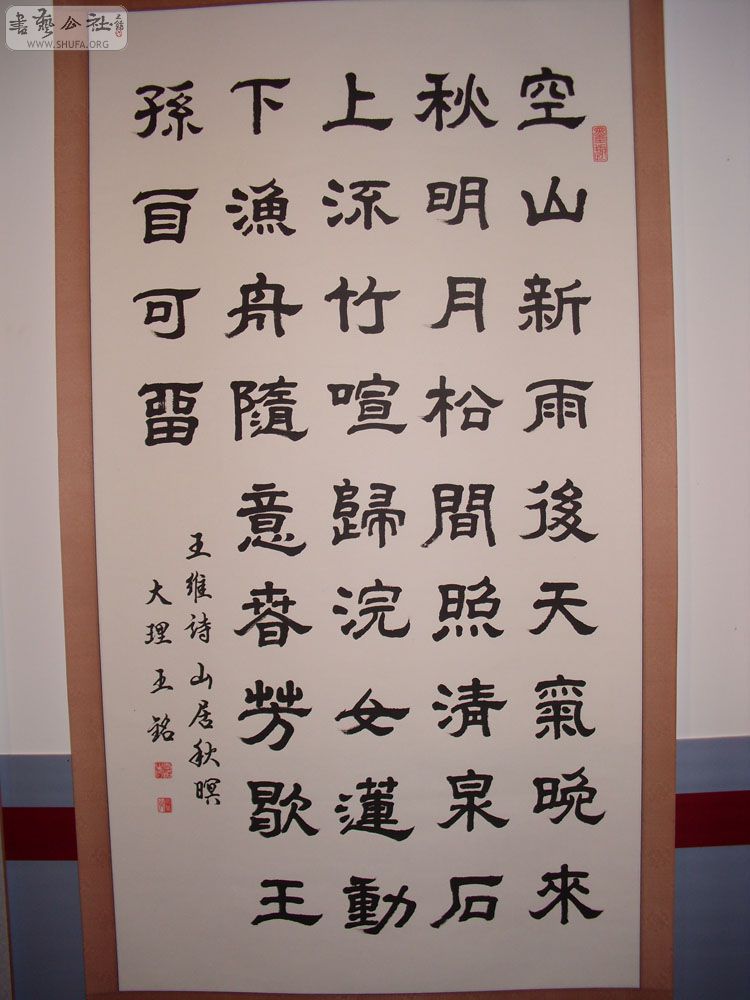 書藝公社
WWW.SHUFA.ORG
空山新雨後天氣晚來
秋明月松間照清泉石
上流竹喧歸浣女蓮動
下漁舟隨意春芳歇王
孫自可留
王維詩山居秋暝
大理王銘